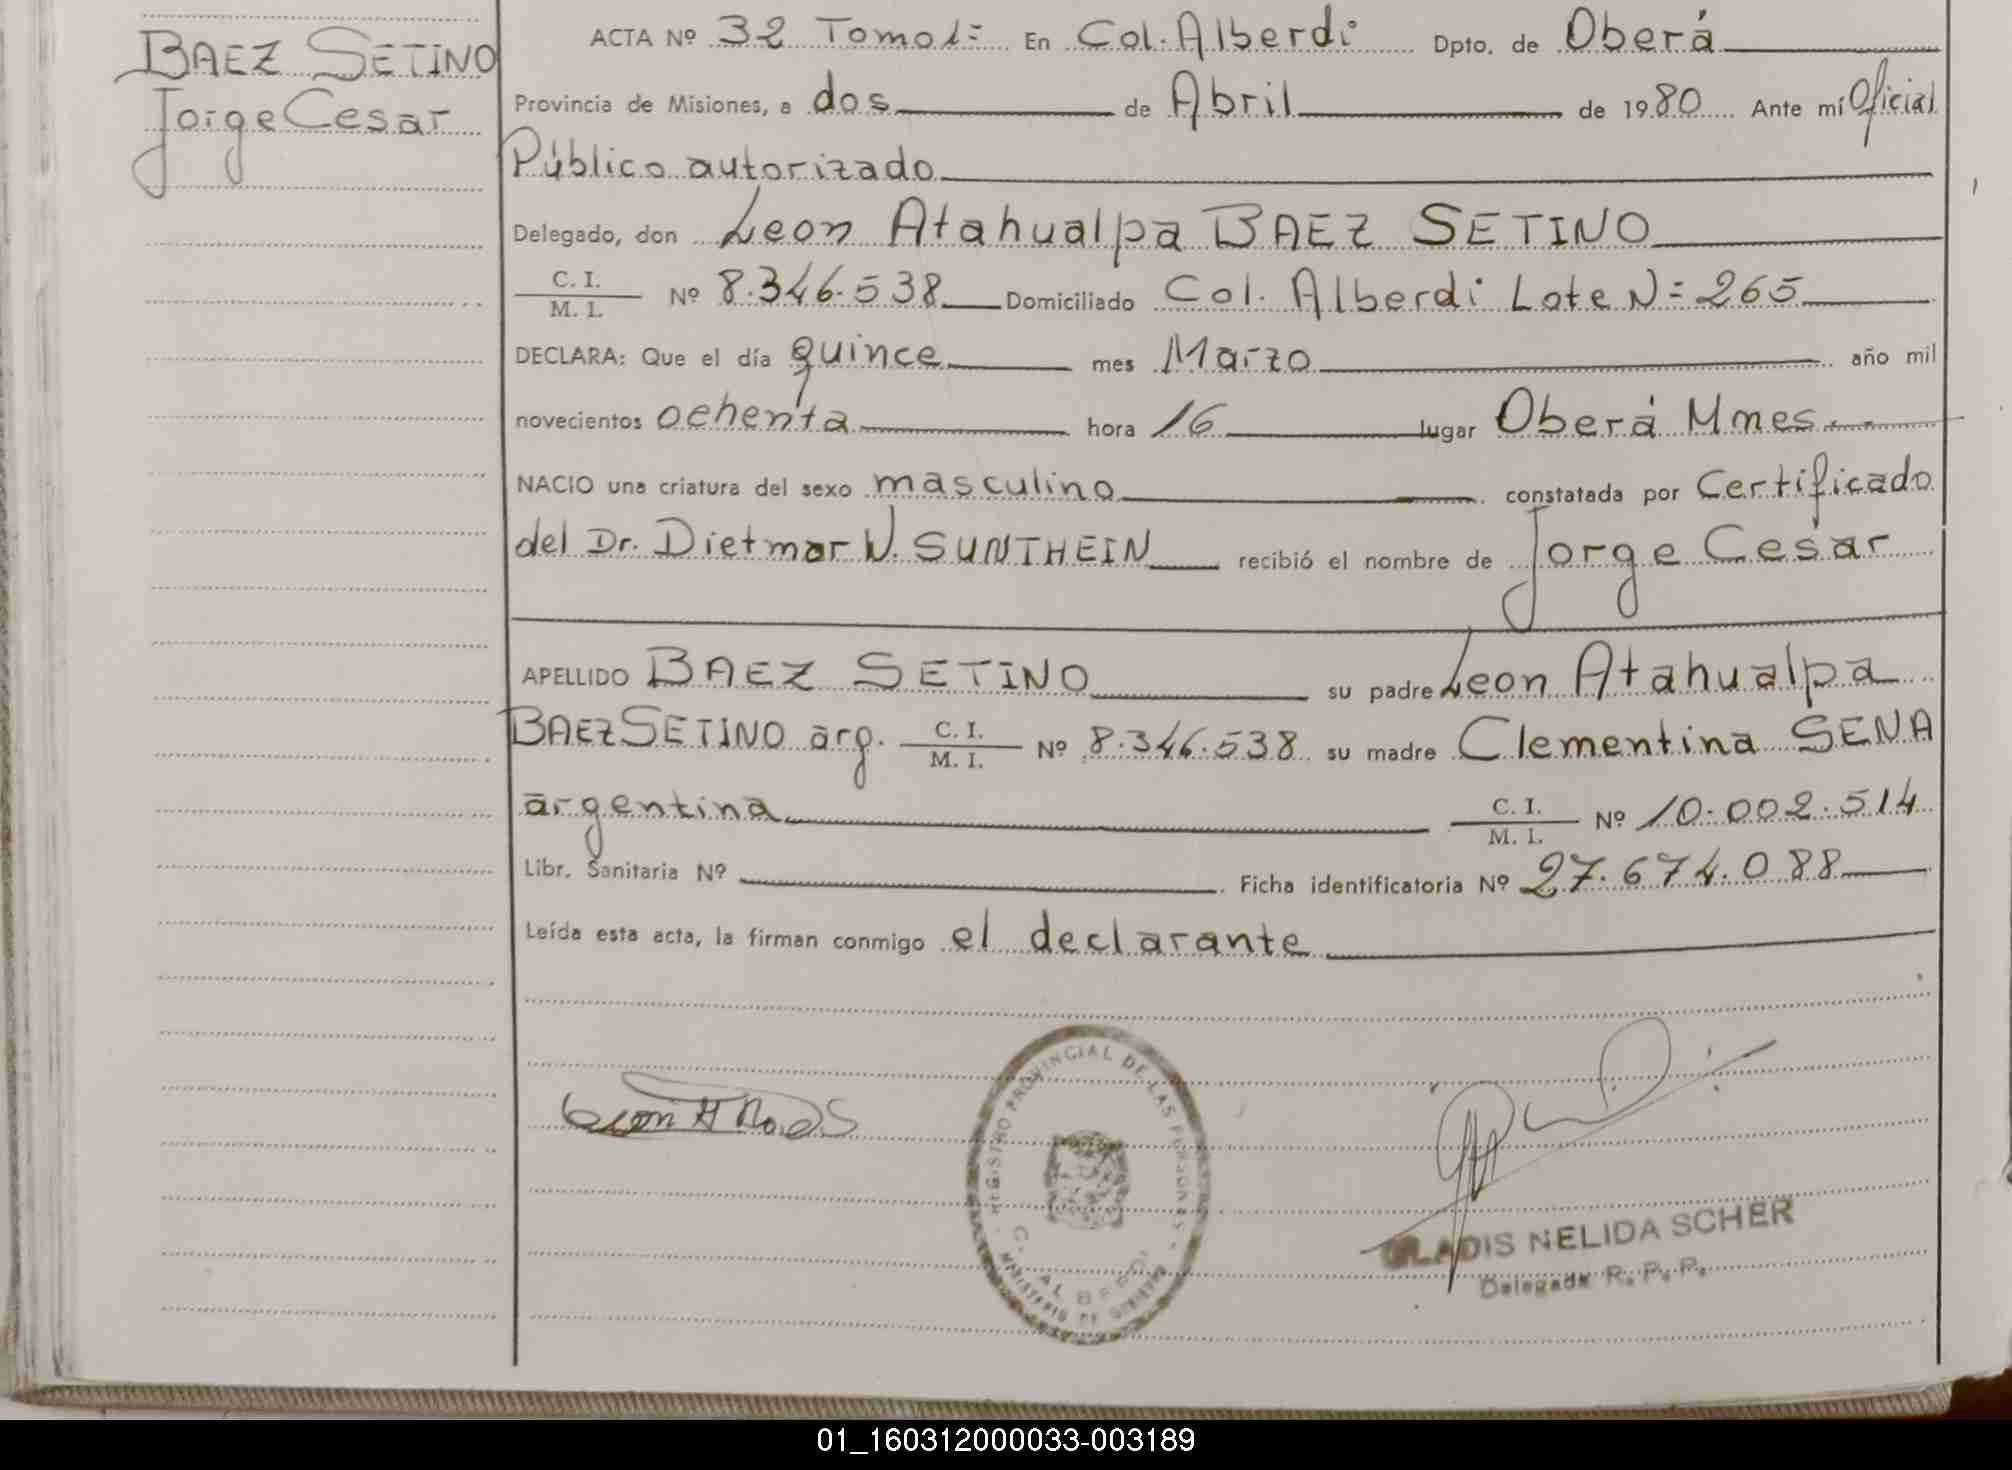 BAEZ SETINO
Jorge Cesar
ACTA Nº 32 Tomo 1= En Col. Alberdi Dpto. de Oberá
Provincia de Misiones, a dos de Abril de 1980 Ante mí Oficial
Público autorizado
Delegado, don Leon Atahualpa BAEZ SETINO
C. I.
M. I.
Nº 8.346.538 Domiciliado Col. Alberdi Lote N= 265
DECLARA: Que el día quince mes Marzo año mil
novecientos ochenta hora 16 lugar Oberá Mnes
NACIO una criatura del sexo masculino constatada por Certificado
del Dr. Dietmar W. SUNTHEIN recibió el nombre de Jorge Cesar
APELLIDO BAEZ SETINO su padre Leon Atahualpa
BAEZ SETINO arg. C. I. / M. I. Nº 8.346.538 su madre Clementina SENA
argentina C. I. / M. I. Nº 10.002.514
Libr. Sanitaria Nº Ficha identificatoria Nº 27.674.088
Leída esta acta, la firman conmigo el declarante
REGISTRO PROVINCIAL DE LAS PERSONAS
MINISTERIO DE GOBIERNO
GLADIS NELIDA SCHER
Delegada R. P. P.
01_160312000033-003189